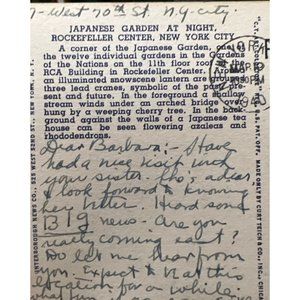 7-West 70th St. N.Y-City.
JAPANESE GARDEN AT NIGHT,
ROCKEFELLER CENTER, NEW YORK CITY
A corner of the Japanese Garden, one of
the twelve individual gardens in the Gardens
of the Nations on the 11th floor roof of the
RCA Building in Rockefeller Center. Around
an illuminated snowscene lantern are grouped
three lead cranes, symbolic of the past, pre-
sent and future. In the foreground a shallow
stream winds under an arched bridge over-
hung by a weeping cherry tree. In the back-
ground against the walls of a Japanese tea
house can be seen flowering azaleas and
rhododendrons.
Dear Barbara:- Have
had a nice visit with
your sister. She's a dear
& look forward to knowing
her better. Heard some
BIG news - Are you
really coming east?
Do let me hear from
you. Expect to be at this
location for a while.
INTERBOROUGH NEWS CO., 225 WEST 34TH ST., NEW YORK, N. Y.
MADE ONLY BY CURT TEICH & CO., INC., CHIC
PM
1940